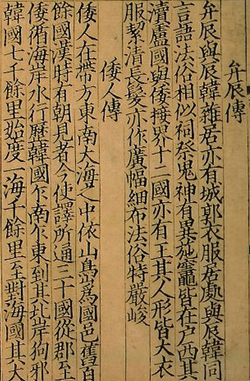 弁辰傳
弁辰與辰韓雜居亦有城郭衣服居處與辰韓同
言語法俗相似祠祭鬼神有異施竈皆在戶西其
瀆盧國與倭接界十二國亦有王其人形皆大衣
服絜清長髮亦作廣幅細布法俗特嚴峻
倭人傳
倭人在帶方東南大海之中依山島爲國邑舊百
餘國漢時有朝見者今使譯所通三十國從郡至
倭循海岸水行歷韓國乍南乍東到其北岸狗邪
韓國七千餘里始度一海千餘里至對海國其大